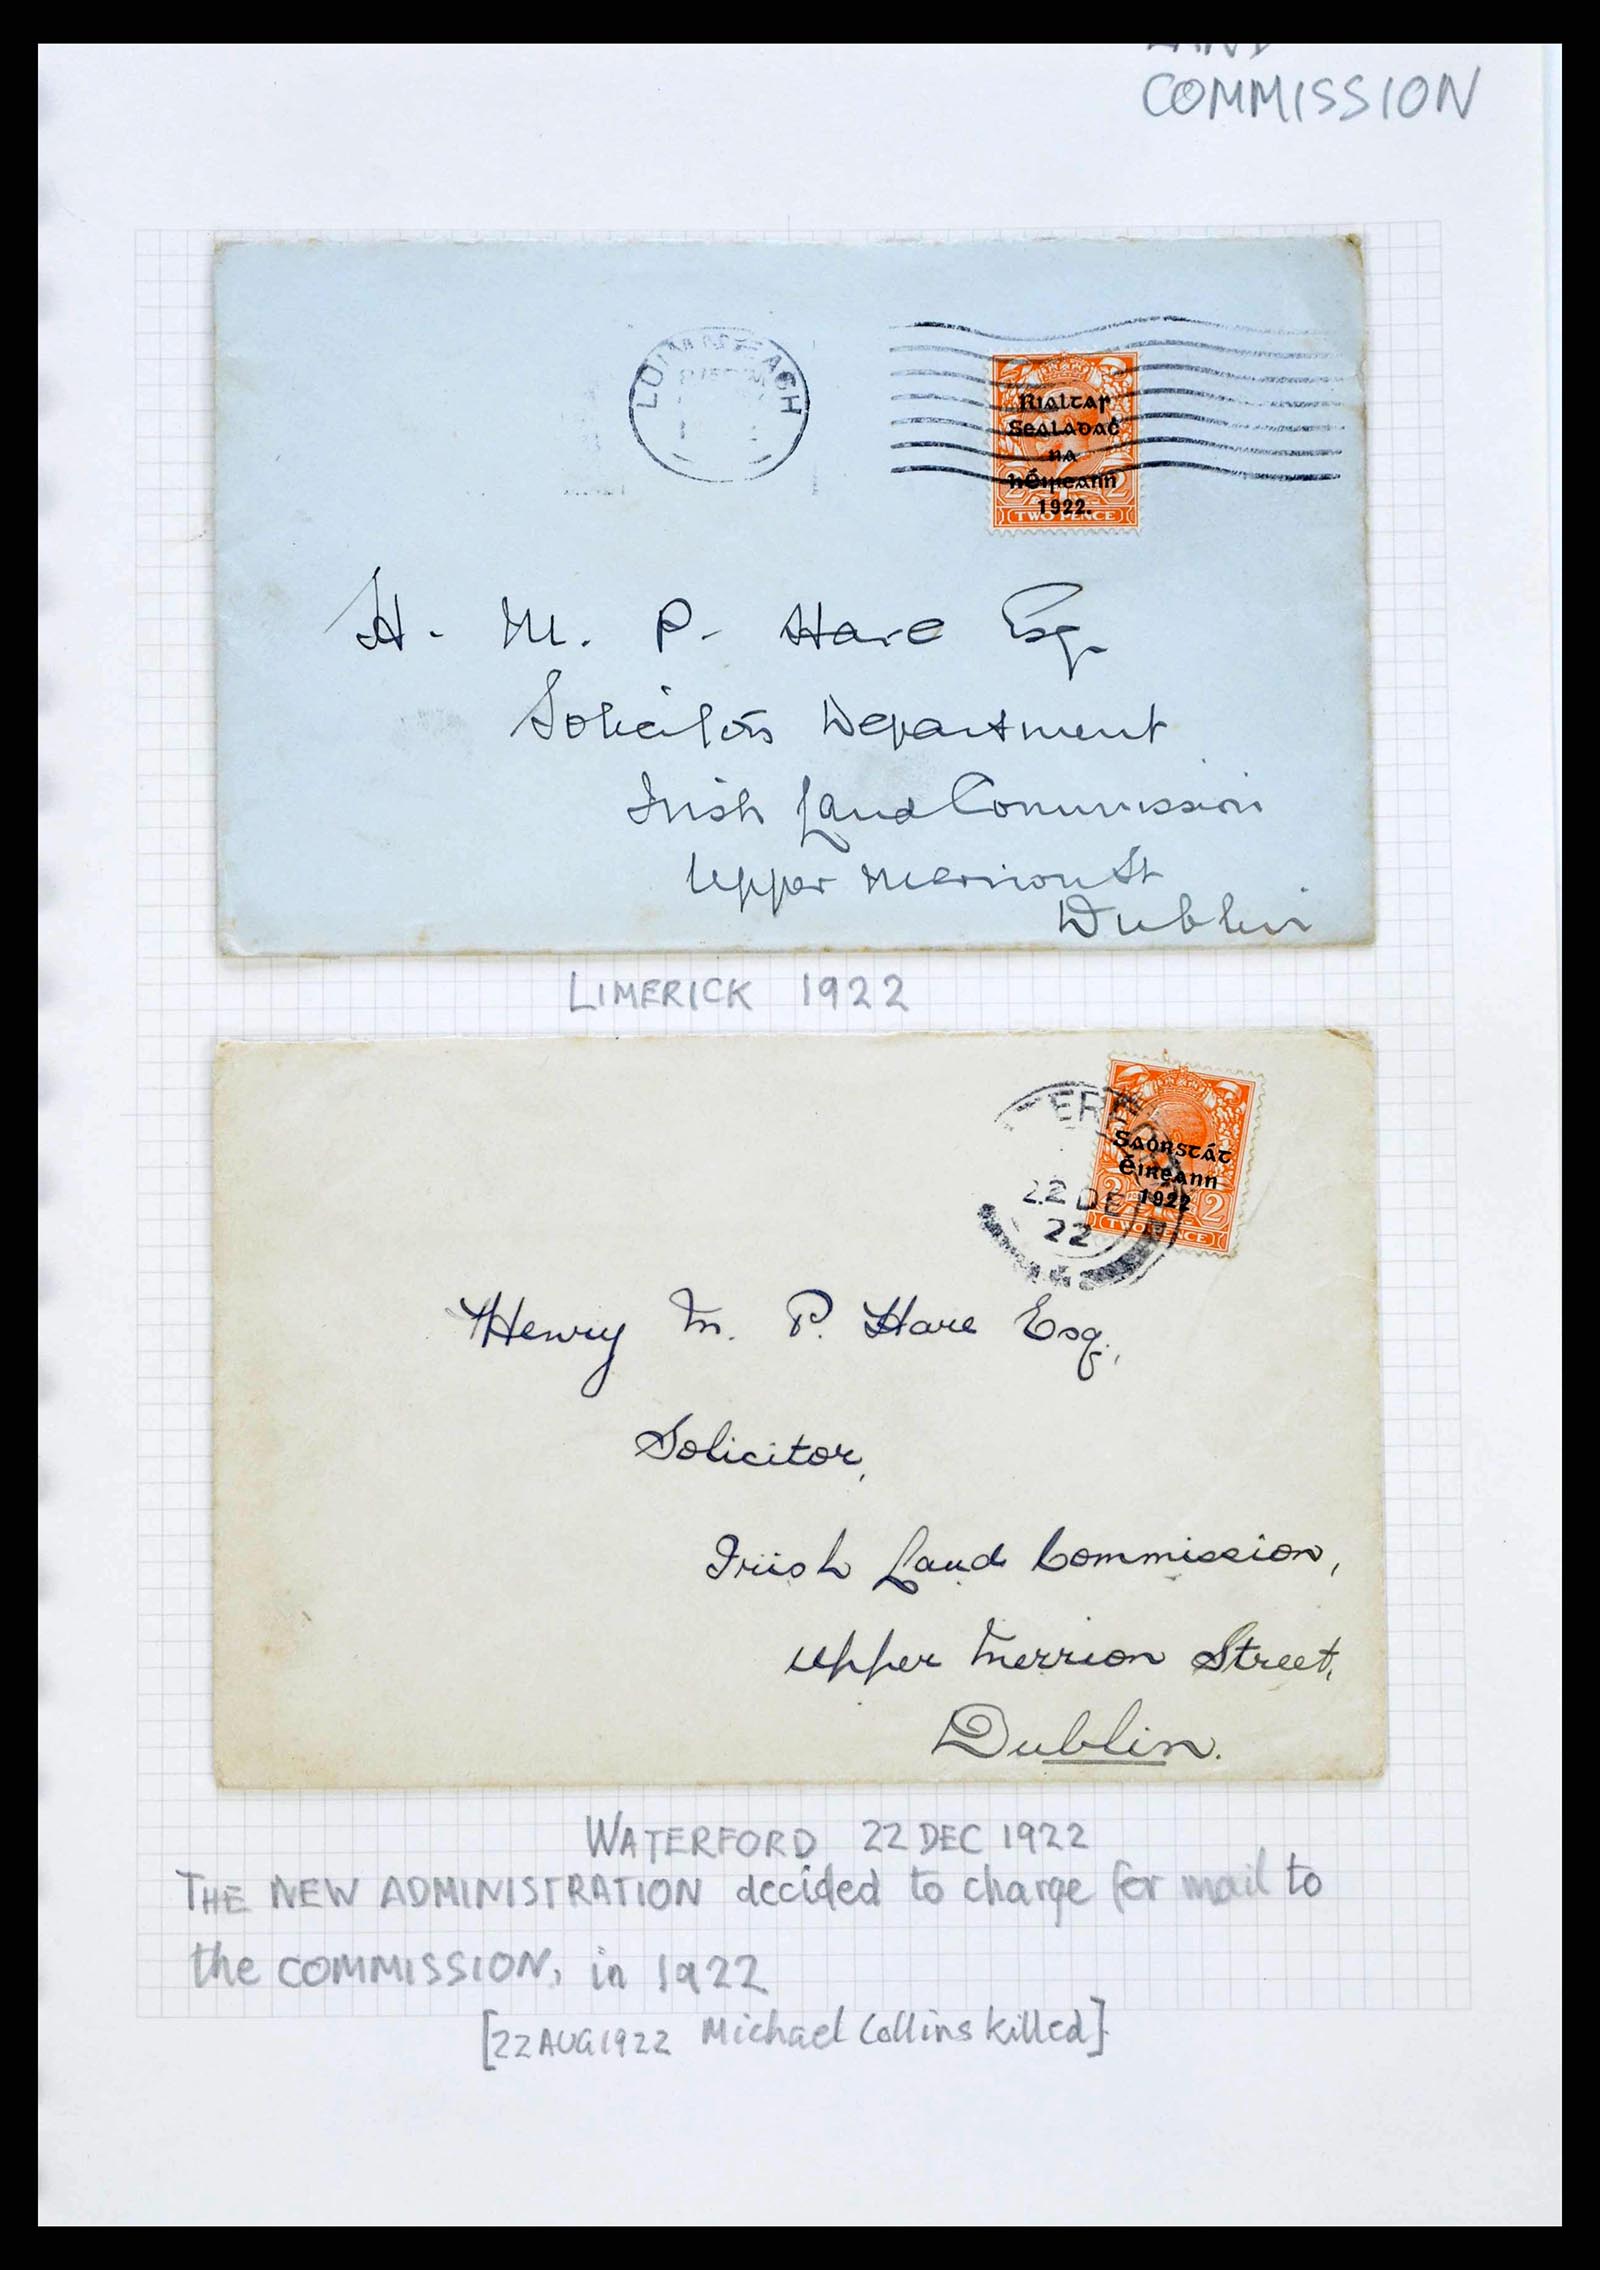 LAND
COMMISSION
LUIMNEACH
Rialtas
Sealadaċ
na
hÉireann
1922.
2 2
TWO PENCE
H. M. P. Hare Esq.
Solicitors Department
Irish Land Commission
Upper Merrion St
Dublin
LIMERICK 1922
22 DE
22
Saorstát
Éireann
1922
2 2
TWO PENCE
Henry M. P. Hare Esq.,
Solicitor,
Irish Land Commission,
Upper Merrion Street,
Dublin.
WATERFORD 22 DEC 1922
THE NEW ADMINISTRATION decided to charge for mail to
the COMMISSION, in 1922
[22 AUG 1922 Michael Collins killed]